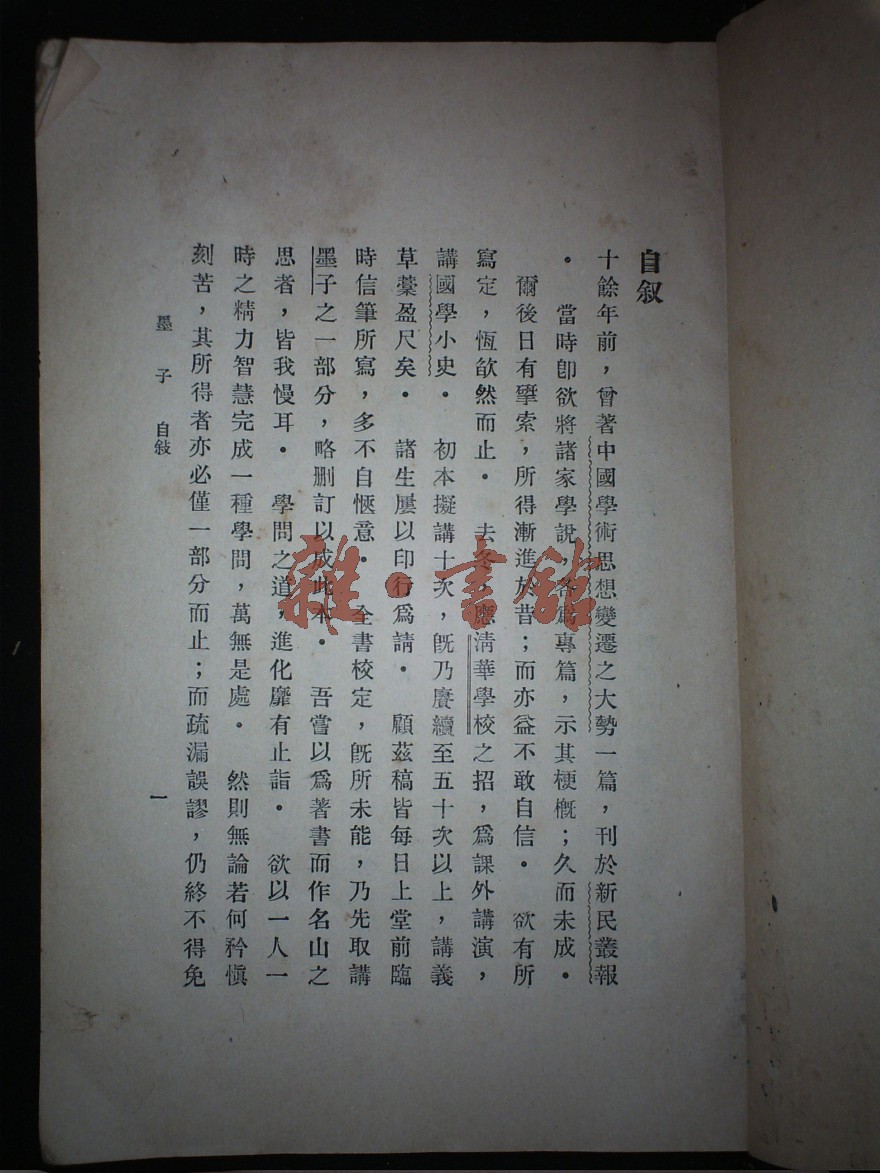 自叙
十餘年前，曾著中國學術思想變遷之大勢一篇，刊於新民叢報
。當時卽欲將諸家學說，各爲專篇，示其梗槪；久而未成。
爾後日有揅索，所得漸進於昔；而亦益不敢自信。欲有所
寫定，恆欿然而止。去冬，應淸華學校之招，爲課外講演，
講國學小史。初本擬講十次，旣乃賡續至五十次以上，講義
草藁盈尺矣。諸生屢以印行爲請。顧茲稿皆每日上堂前臨
時信筆所寫，多不自愜意。全書校定，旣所未能，乃先取講
墨子之一部分，略删訂以成此本。吾嘗以爲著書而作名山之
思者，皆我慢耳。學問之道，進化靡有止詣。欲以一人一
時之精力智慧完成一種學問，萬無是處。然則無論若何矜愼
刻苦，其所得者亦必僅一部分而止；而疏漏誤謬，仍終不得免
墨子 自敍
一
雜·書館